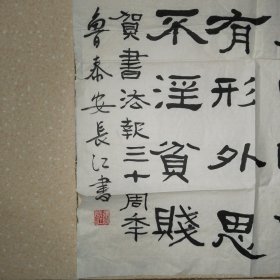 有形外思
不淫貧賤
賀書法報三十周年
魯泰安長江書